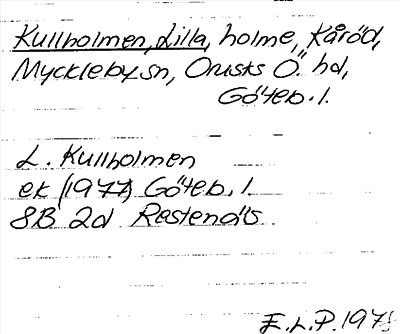 Kullholmen, Lilla, holme, Kåröd,
Myckleby sn, Orusts Ö. hd,
Göteb. l.
L. Kullholmen
ek (1977) Göteb. l.
8B 2d Restenäs
E.L.P. 1978